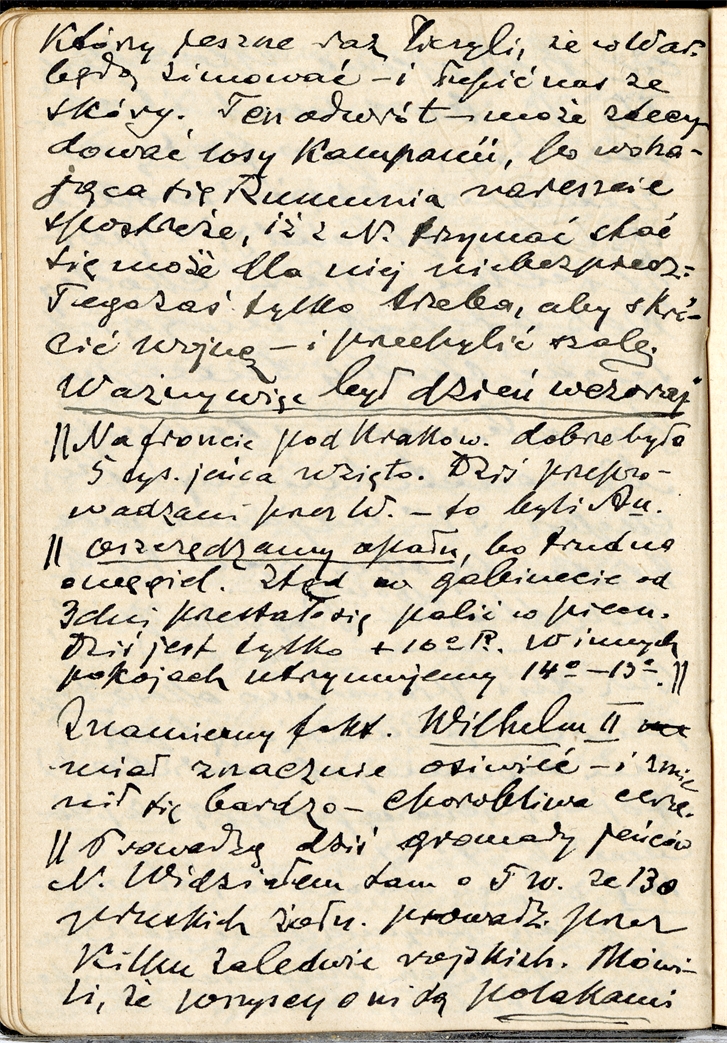 Którzy jeszcze raz liczyli, że w War.
będą zimować – i łupić nas ze
skóry. Ten odwrót – może zdecy
dować losy Kampanii, bo waha-
jąca się Rumunia nareszcie
spostrzeże, iż z N. trzymać stać
się może dla niej niebezpiecz=
Tego zaś tylko trzeba, aby skró-
cić wojnę – i przechylić szalę.
Ważny więc był dzień wczoraj
|| Na froncie pod Krakow. dobrze było
5 tys. jeńca wzięto. Dziś przepro-
wadzani przez W. – to byli Au.
|| oszczędzamy opału, bo trudno
o węgiel. Stąd w gabinecie od
3 dni przestało się palić w piecu.
Dziś jest tylko + 10° R. W innych
pokojach utrzymujemy 14° – 13°. ||
Znamienny fakt. Wilhelm II
miał znacznie osiwieć – i zmie
nił się bardzo – chorobliwa cera.
|| Prowadzą dziś gromady jeńców
N. Widziałem sam o 5 w. ze 130
pruskich żołn. prowadz. przez
Kilku zaledwie rosyjskich. Mówi-
li, że wszyscy oni są polakami